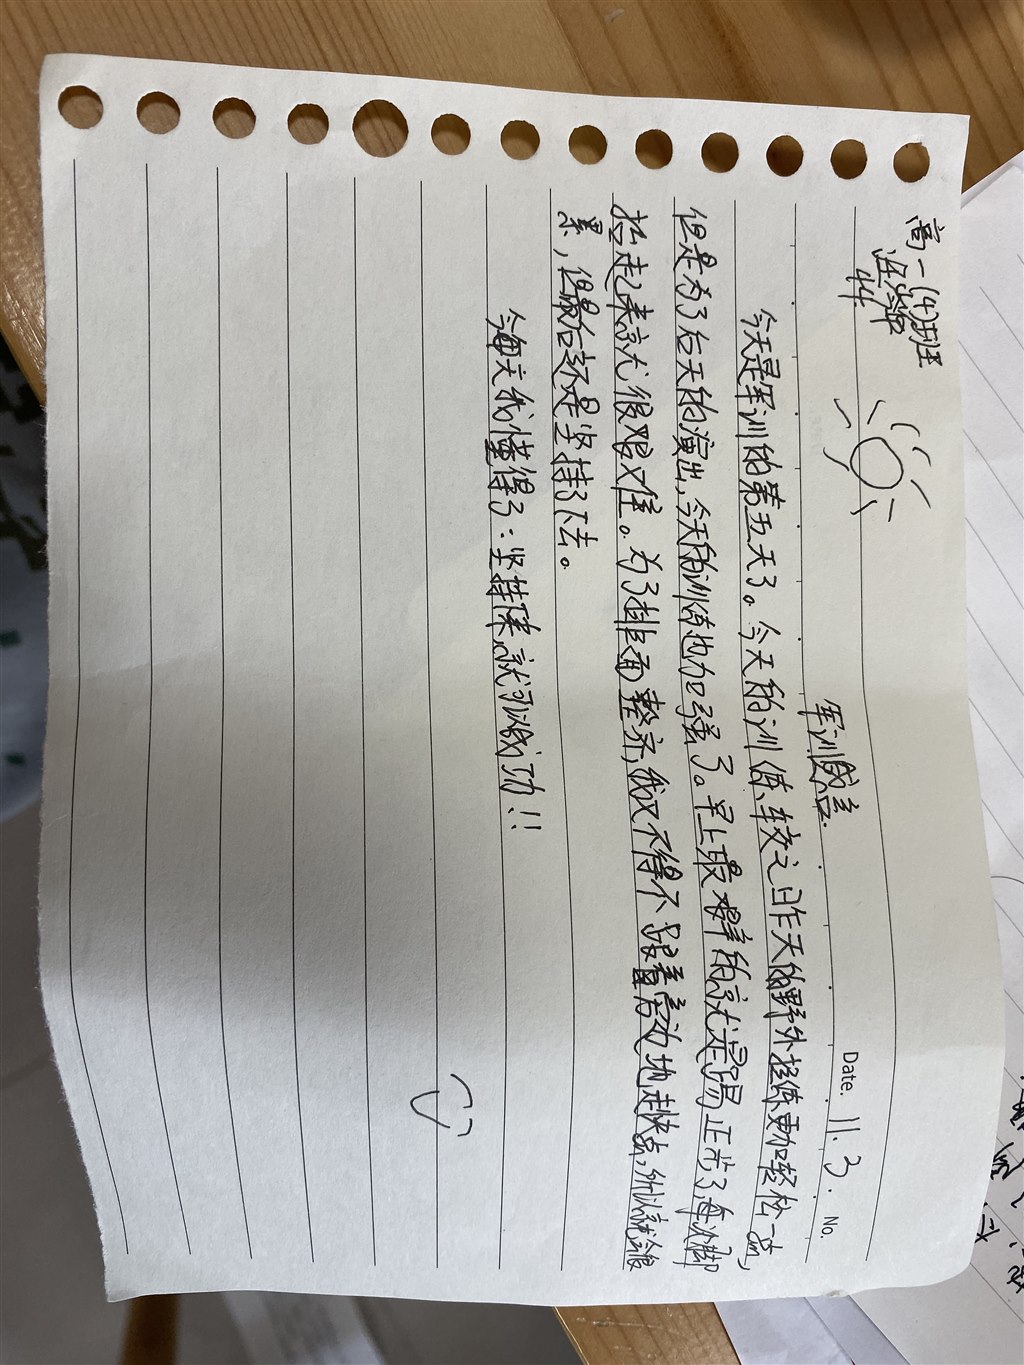 高一(4)班
Date. 11. 3. No.
军训感言.
今天是军训的第五天了。今天的训练,较之昨天的野外拉练更加轻松一点,
但是为了后天的演出,今天的训练也加强了。早上最难的就是踢正步了,每次脚
抬起来就很艰难。为了排面整齐,我又不得不跟着旁边地走快点,所以就会很
累,但最后还是坚持了下去。
今天我懂得了:坚持下来,就可以成功!!